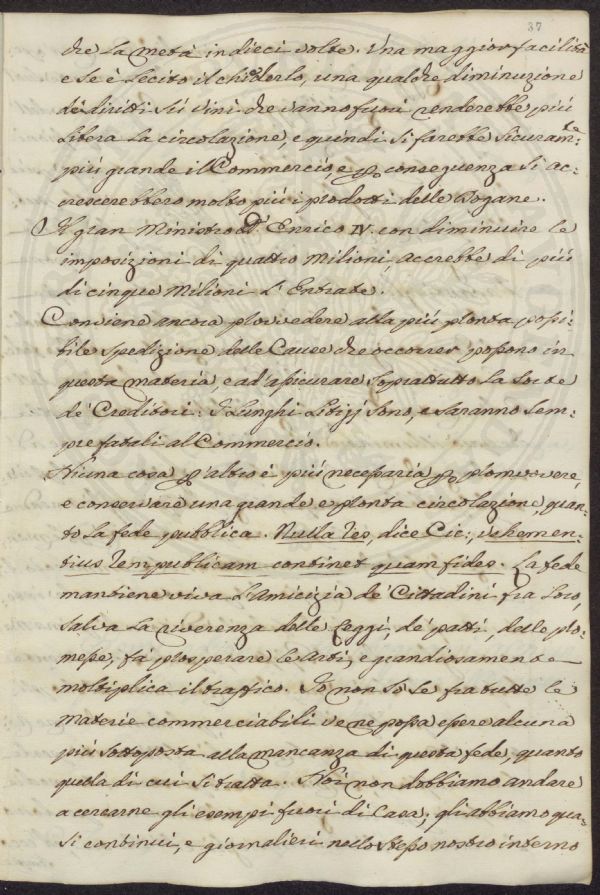 37
che la metà in dieci volte. Una maggior facilità
e se è lecito il chiederlo, una qualche diminuzione
di diritti sù i vini che vanno fuori renderebbe più
libera la circolazione, e quindi si farebbe sicuram:te
più grande il Commercio, e p conseguenza si ac:
crescerebbero molto più i prodotti delle Dogane.
Il gran Ministro d' Enrico IV. con diminuire le
imposizioni di quattro milioni, accrebbe di più
di cinque Milioni l' Entrate.
Conviene ancora provvedere alla più pronta possi:
bile spedizione delle Cause che occorrer possono in
questa materia, e ad' assicurare soprattutto la sorte
de' Creditori: I lunghi Litigj sono, e saranno sem:
pre fatali al Commercio.
Niuna cosa p altro è più necessaria p promuovere,
e conservare una grande e pronta circolazione, quan:
to la fede pubblica. Nulla res, dice Cic:, vehemen:
tius rempublicam continet quam fides. La fede
mantiene viva l'amicizia de' Cittadini fra loro,
salva la riverenza delle Leggi, de' patti, delle pro:
messe, fà prosperare le arti, e grandiosamente
moltiplica il traffico. Io non sò se fra tutte le
materie commerciabili ve ne possa essere alcuna
più sottoposta alla mancanza di questa fede, quanto
quella di cui si tratta. Noi non dobbiamo andare
a cercarne gli esempi fuori di Casa; gli abbiamo qua:
si continui, e giornalieri nello stesso nostro interno